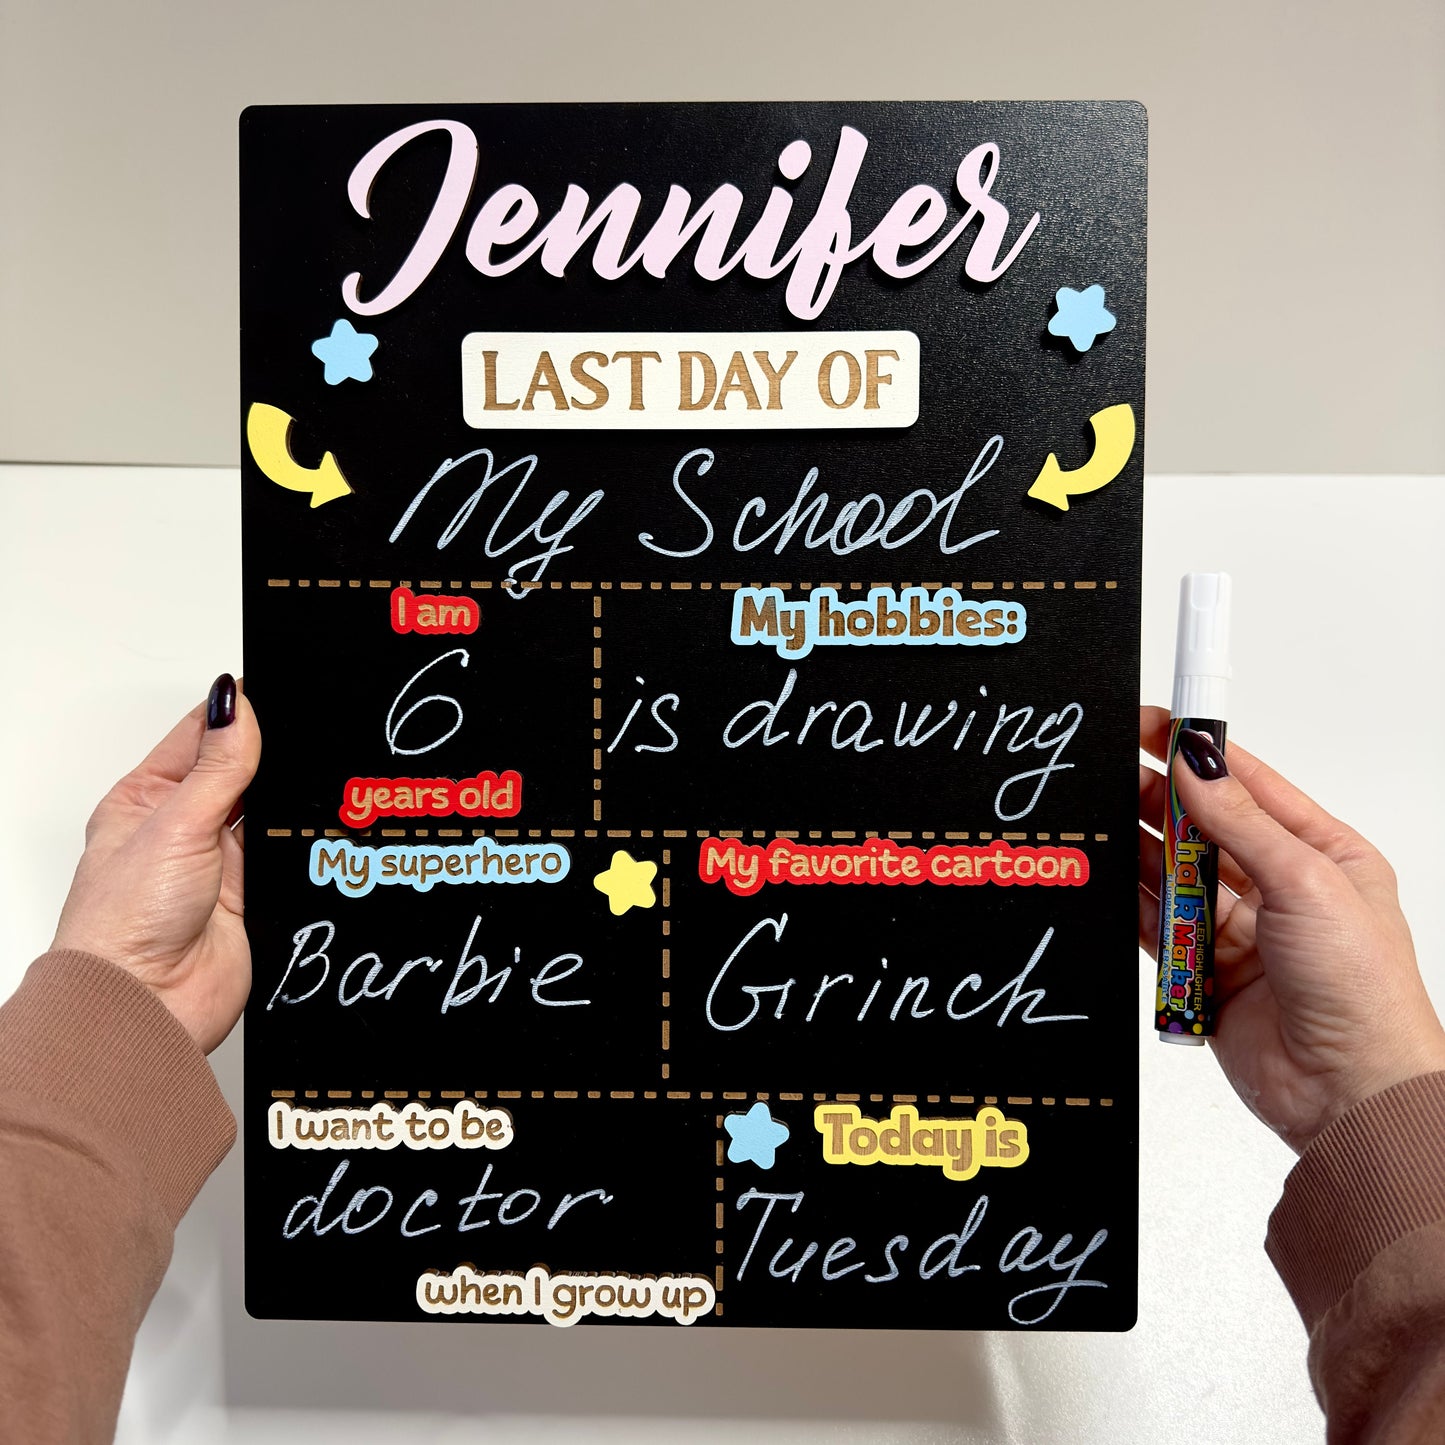 Jennifer
LAST DAY OF
My School
I am
6
years old
My hobbies:
is drawing
My superhero
Barbie
My favorite cartoon
Grinch
I want to be
doctor
when I grow up
Today is
Tuesday
Chalk Marker
LED HIGHLIGHTER
FLUORESCENT ERASABLE